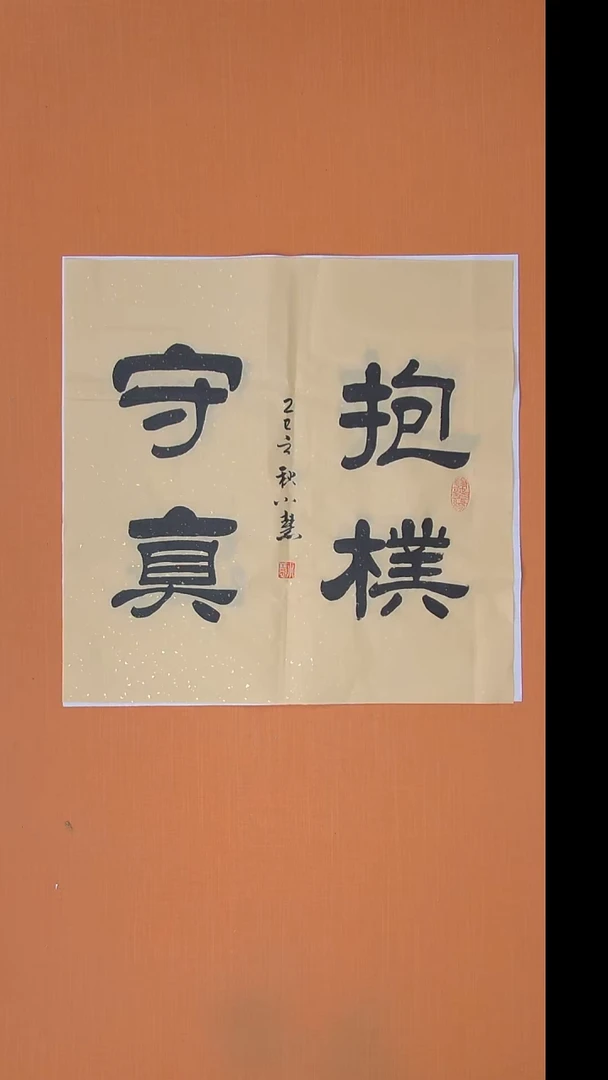 抱樸
守真
乙巳之秋小慧